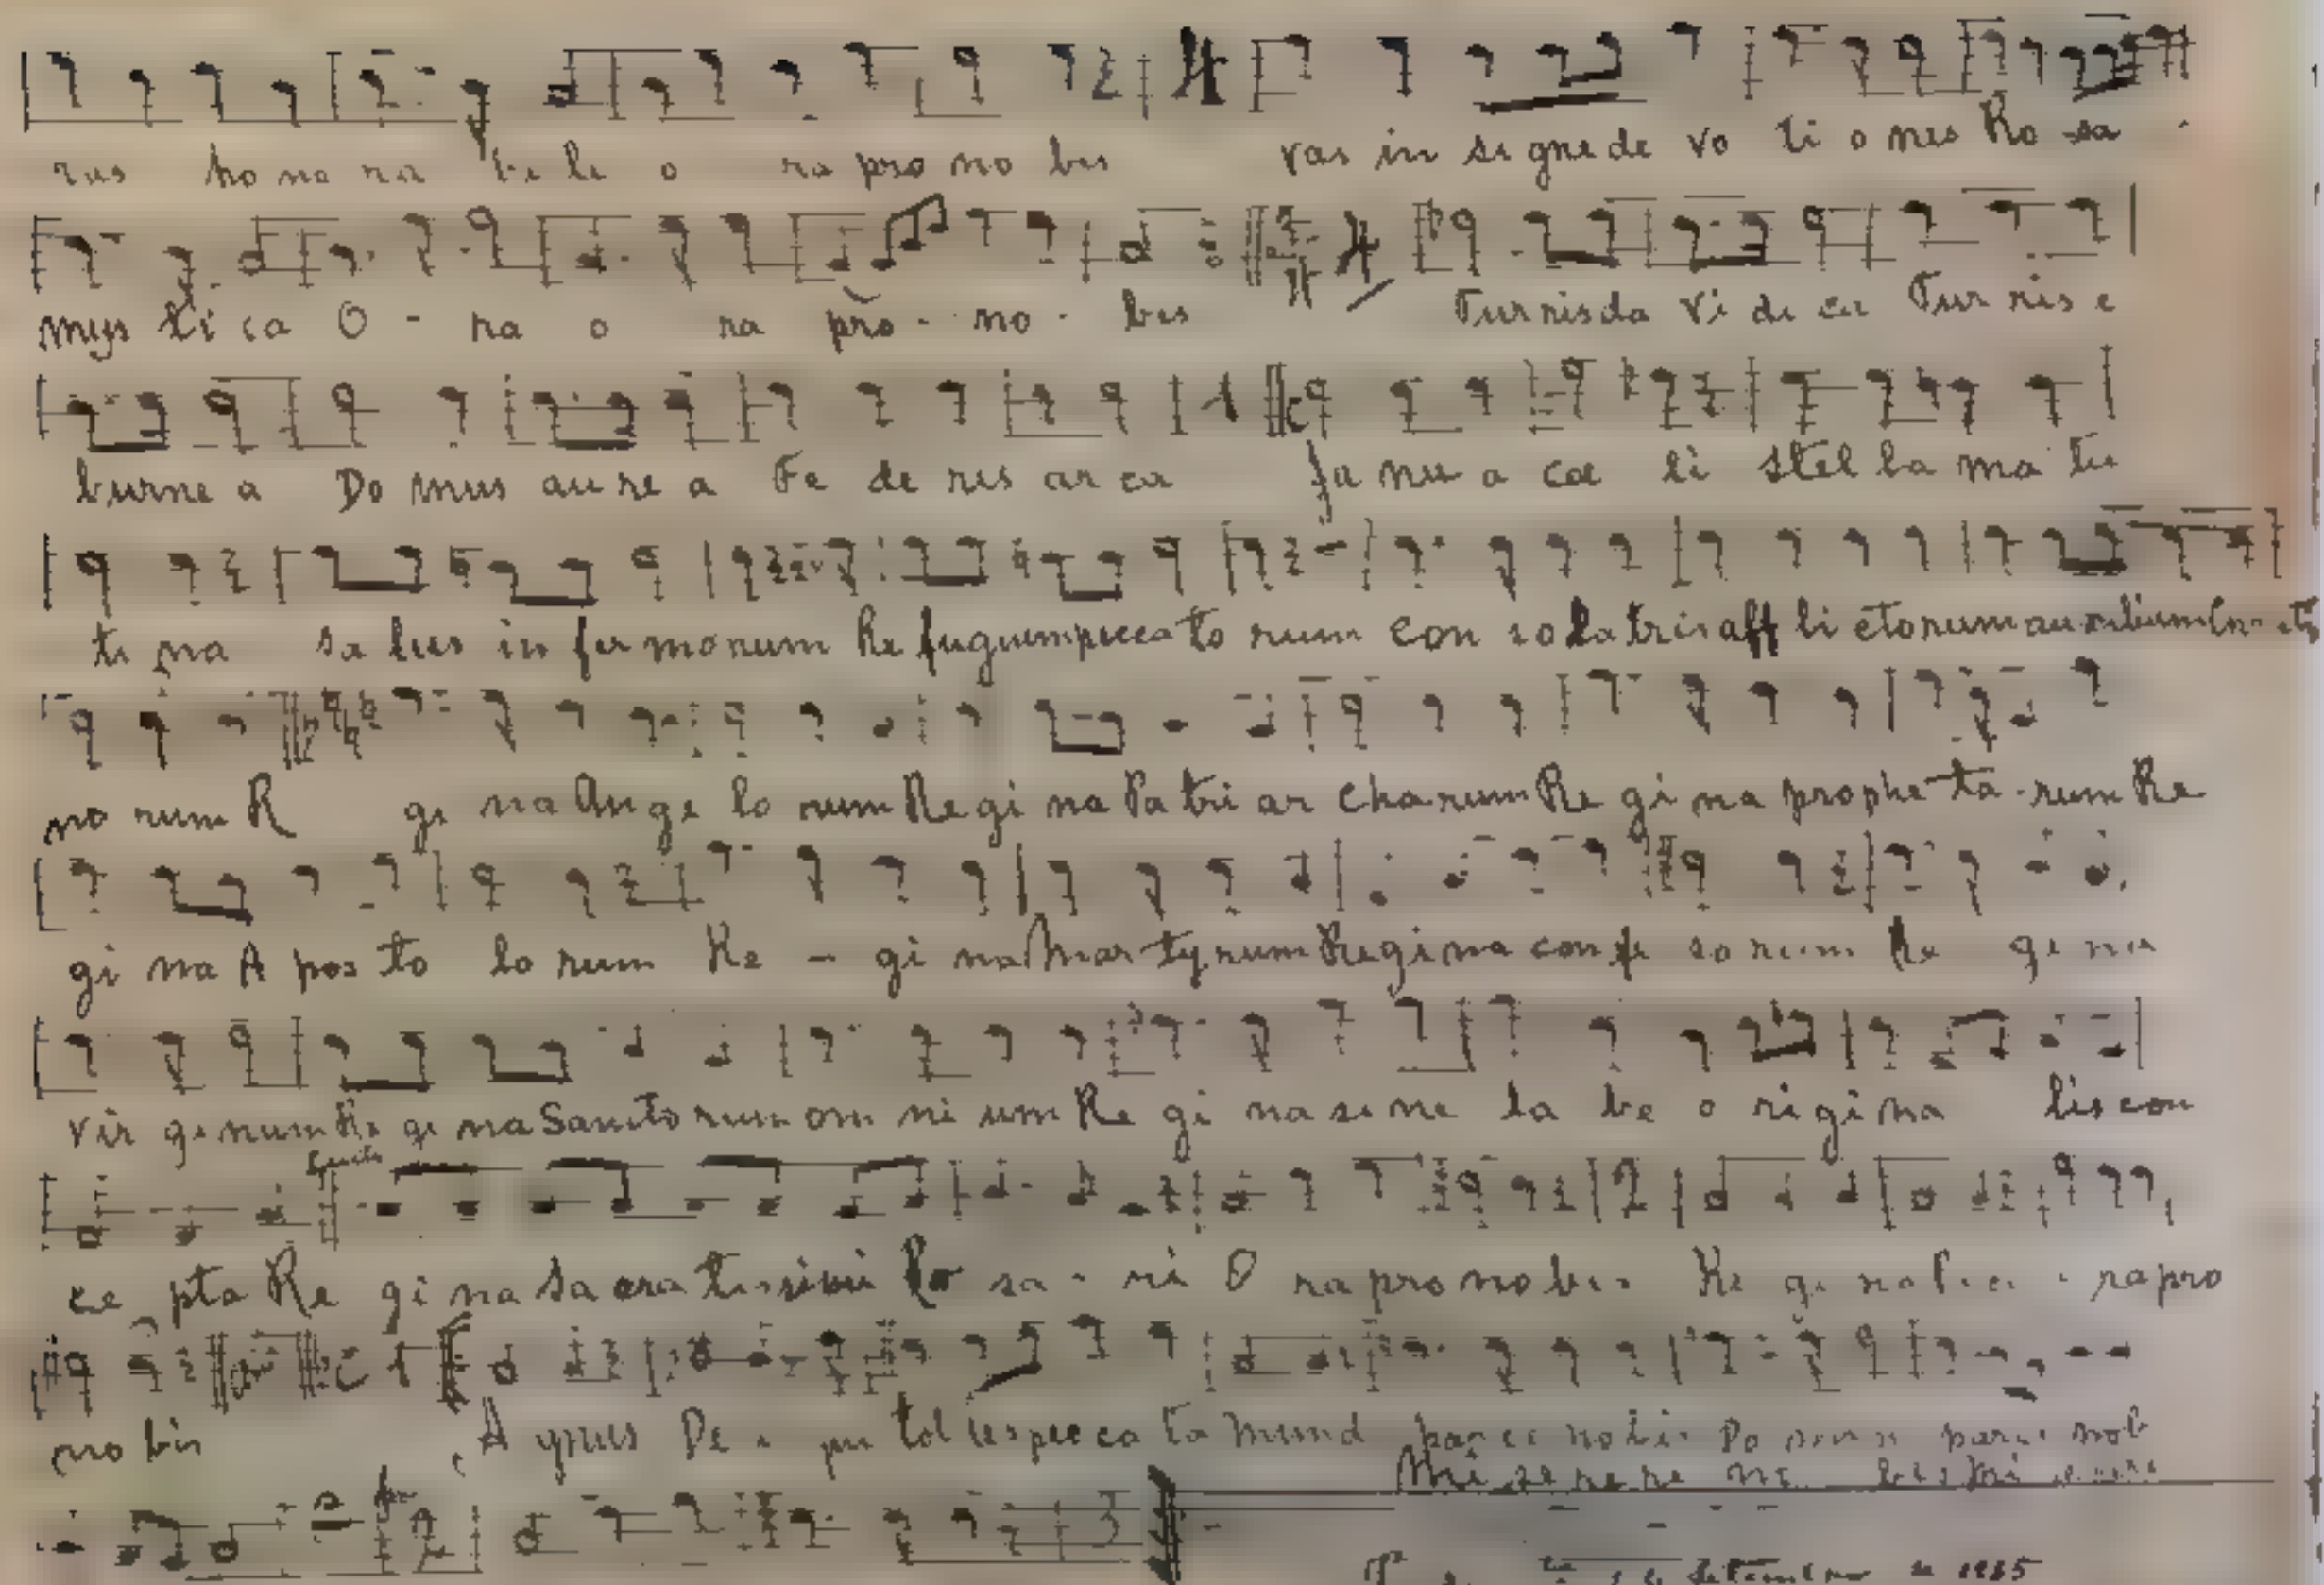 rus ho no ra bi le o ra pro no bis vas in signe de vo ti o nis Ro sa
mys ti ca O - ra o ra pro - no - bis Turris da vi di ca Tur ris e
burne a Do mus au re a Fe de ris ar ca Ja nu a coe li stel la ma tu
ti na sa lus in fir morum Re fugium pecca to rum con so la tris aff li ctorum auxilium
no rum R gi na An ge lo rum Re gi na Pa tri ar charum Re gi na prophe ta - rum Re
gi na A pos to lo rum Re - gi na Mar tyrum Regina con fe so rum Re gi na
vir ginum Re gi na Sancto rum om ni um Re gi na si ne la be o rigi na lis con
ce pta Re gi na Sa cra tissimi Ro sa - ri O ra pro no bis Re gi na ra pro
no bis A gnus De i qui tol lis pecca ta mund parce nobis Do parce nob
Mi se re re
Setembro de 1985